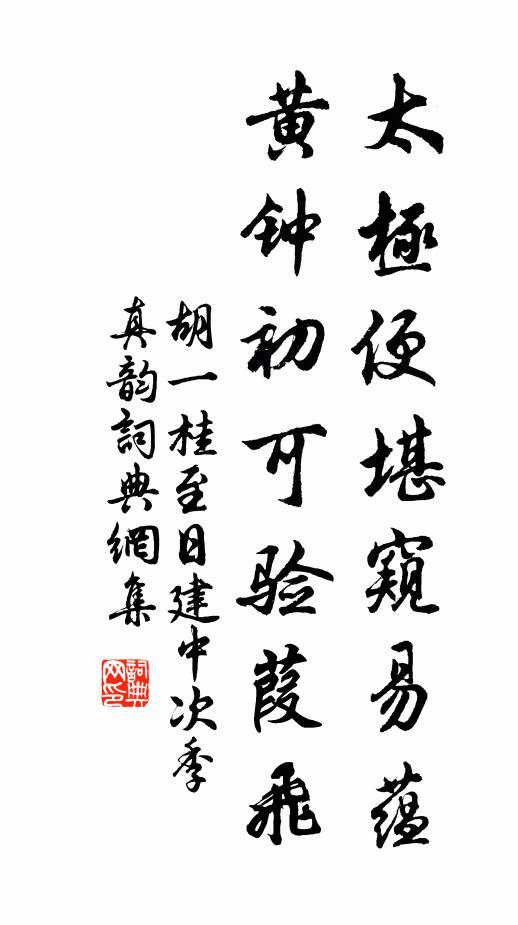 太極便堪窺易蕴
黄钟初可验葭飛
胡一桂至日建中次季
真韵詞典網集
詞典网印